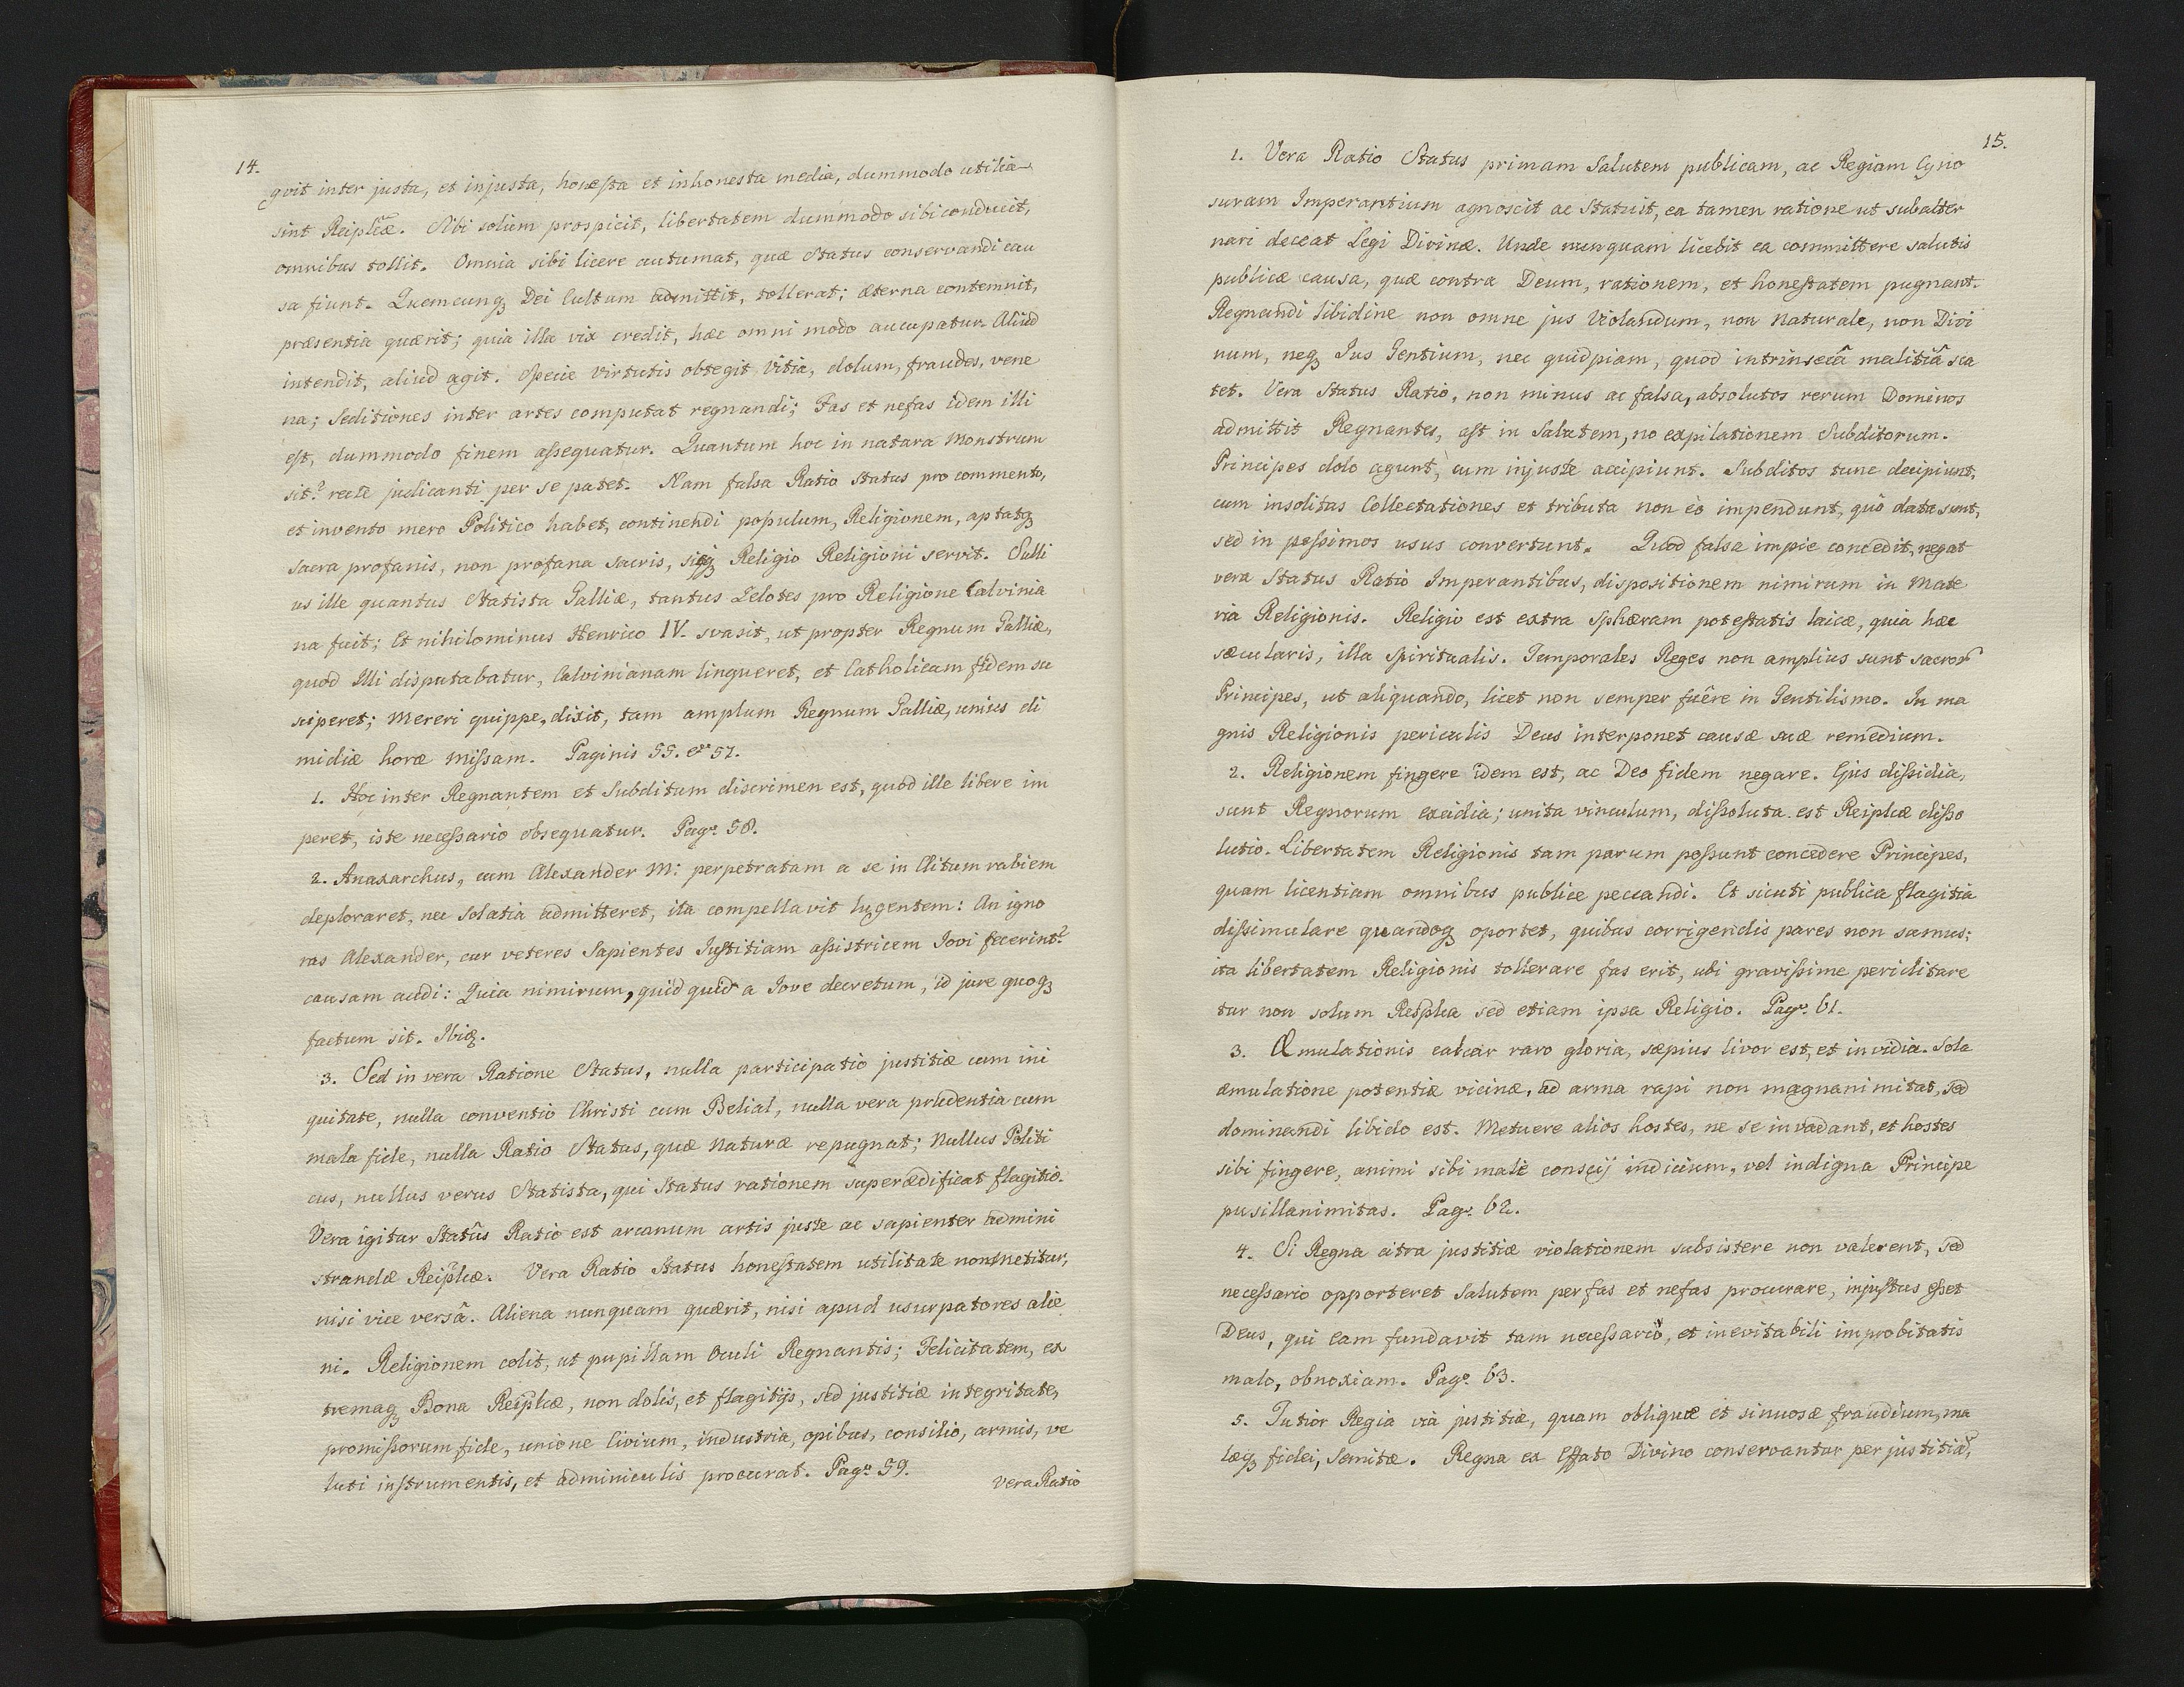 14.
qvit inter justa, et injusta, honesta et inhonesta media, dummodo utilia
sint Reiplcæ. Sibi solum prospicit, libertatem dummodo sibi conducit,
omnibus tollit. Omnia sibi licere autumat, quæ Status conservandi cau
sa fiunt. Quemcunq; Dei Cultum admittit, tollerat; æterna contemnit,
præsentia quærit; quia illa vix credit, hæc omni modo aucupatur. Aliud
intendit, aliud agit. Specie virtutis obtegit Vitia, dolum, fraudes, vene
na; Seditiones inter artes computat regnandi; Fas et nefas idem illi
est, dummodo finem assequatur. Quantum hoc in natura Monstrum
sit? recte judicanti per se patet. Nam falsa Ratio Status pro commento,
et invento mero Politico habet, continendi populum, Religionem, aptatq;
sacra profanis, non profana sacris, sicq; Religio Religioni servit. Sulli
us ille quantus Statista Galliæ, tantus Zelotes pro Religione Calvinia
na fuit; Et nihilominus Henrico IV. svasit, ut propter Regnum Galliæ,
quod Illi disputabatur, Calvinianam linqueret, et Catholicam fidem su
sciperet; Mereri quippe, dixit, tam amplum Regnum Galliæ, unius di
midiæ horæ Missam. Paginis 55. et 57.
1. Hoc inter Regnantem et Subditum discrimen est, quod ille libere im
peret, iste necessario obsequatur. Pag. 58.
2. Anaxarchus, cum Alexander M: perpetratam a se in Clitum rabiem
deploraret, nec solatia admitteret, ita compellavit lugentem: An igno
ras Alexander, cur veteres Sapientes Justitiam assistricem Jovi fecerint?
causam audi: Quia nimirum, quidquid a Jove decretum, id jure quoq;
factum sit. Ibiq.
3. Sed in vera Ratione Status, nulla participatio justitiæ cum ini
quitate, nulla conventio Christi cum Belial, nulla vera prudentia cum
mala fide, nulla Ratio Status, quæ Naturæ repugnat; Nullus Politi
cus, nullus verus Statista, qui Status rationem superædificat flagitio.
Vera igitur Statûs Ratio est arcanum artis juste ac sapienter admini
strandæ Reiplcæ. Vera Ratio Status honestatem utilitate non metitur,
nisi vice versâ. Aliena nunquam quærit, nisi apud usurpatores alie
ni. Religionem colit, ut pupillam Oculi Regnantis; Felicitatem, ex
tremaq; Bona Reiplcæ, non dolis, et flagitijs, sed justitiæ integritate,
promissorum fide, unione Civium, industria, opibus, consilio, armis, ve
luti instrumentis, et adminiculis procurat. Pag. 59.
Vera Ratio
15.
1. Vera Ratio Status primam Salutem publicam, ac Regiam Cyno
suram Imperantium agnoscit ac Statuit, ea tamen ratione ut subalter
nari deceat Legi Divinæ. Unde nunquam licebit ea committere salutis
publicæ causa, quæ contra Deum, rationem, et honestatem pugnant.
Regnandi libidine non omne jus Violandum, non Naturale, non Divi
num, neq; Jus Gentium, nec quidpiam, quod intrinsecâ malitiâ sca
tet. Vera Status Ratio, non minus ac falsa, absolutos rerum Dominos
admittit Regnantes, ast in Salutem, no expilationem Subditorum.
Principes dolo agunt, cum injuste accipiunt. Subditos tunc decipiunt,
cum insolitas Collectationes et tributa non eò impendunt, quô data sunt,
sed in pessimos usus convertunt. Quod falsa impie concedit, negat
vera Status Ratio Imperantibus, dispositionem nimirum in Mate
ria Religionis. Religio est extra Sphæram potestatis laicæ, quia hæc
sæcularis, illa Spiritualis. Temporales Reges non amplius sunt sacror
Principes, ut aliquando, licet non semper fuêre in Gentilismo. In ma
gnis Religionis periculis Deus interponet causæ suæ remedium.
2. Religionem fingere idem est, ac Deo fidem negare. Ejus dissidia,
sunt Regnorum excidia; unita vinculum, dissoluta est Reiplcæ disso
lutio. Libertatem Religionis tam parum possunt concedere Principes,
quam licentiam omnibus publice peccandi. Et sicuti publica flagitia
dissimulare quandoq; oportet, quibus corrigendis pares non sumus;
ita libertatem Religionis tollerare fas erit, ubi gravissime periclitare
tur non solum Resplca sed etiam ipsa Religio. Pag. 61.
3. Æmulationis calcar raro gloria, sæpius livor est, et invidia. Sola
æmulatione potentiæ vicinæ, ad arma rapi non magnanimitat, sed
dominandi libido est. Metuere alios hostes, ne se invadant, et hostes
sibi fingere, animi sibi malè conscij indicium, vel indigna Principe
pusillanimitas. Pag. 62.
4. Si Regna citra justitiæ violationem subsistere non valerent, sed
necessario opporteret Salutem per fas et nefas procurare, injustus esset
Deus, qui eam fundavit tam necessariò, et inevitabili improbitatis
malo, obnoxiam. Pag. 63.
5. Tutior Regia via justitiæ, quam obliquæ et sinuosæ fraudium, ma
læq; fidei, Semitæ. Regna ex Effato Divino conservantur per justitiã,